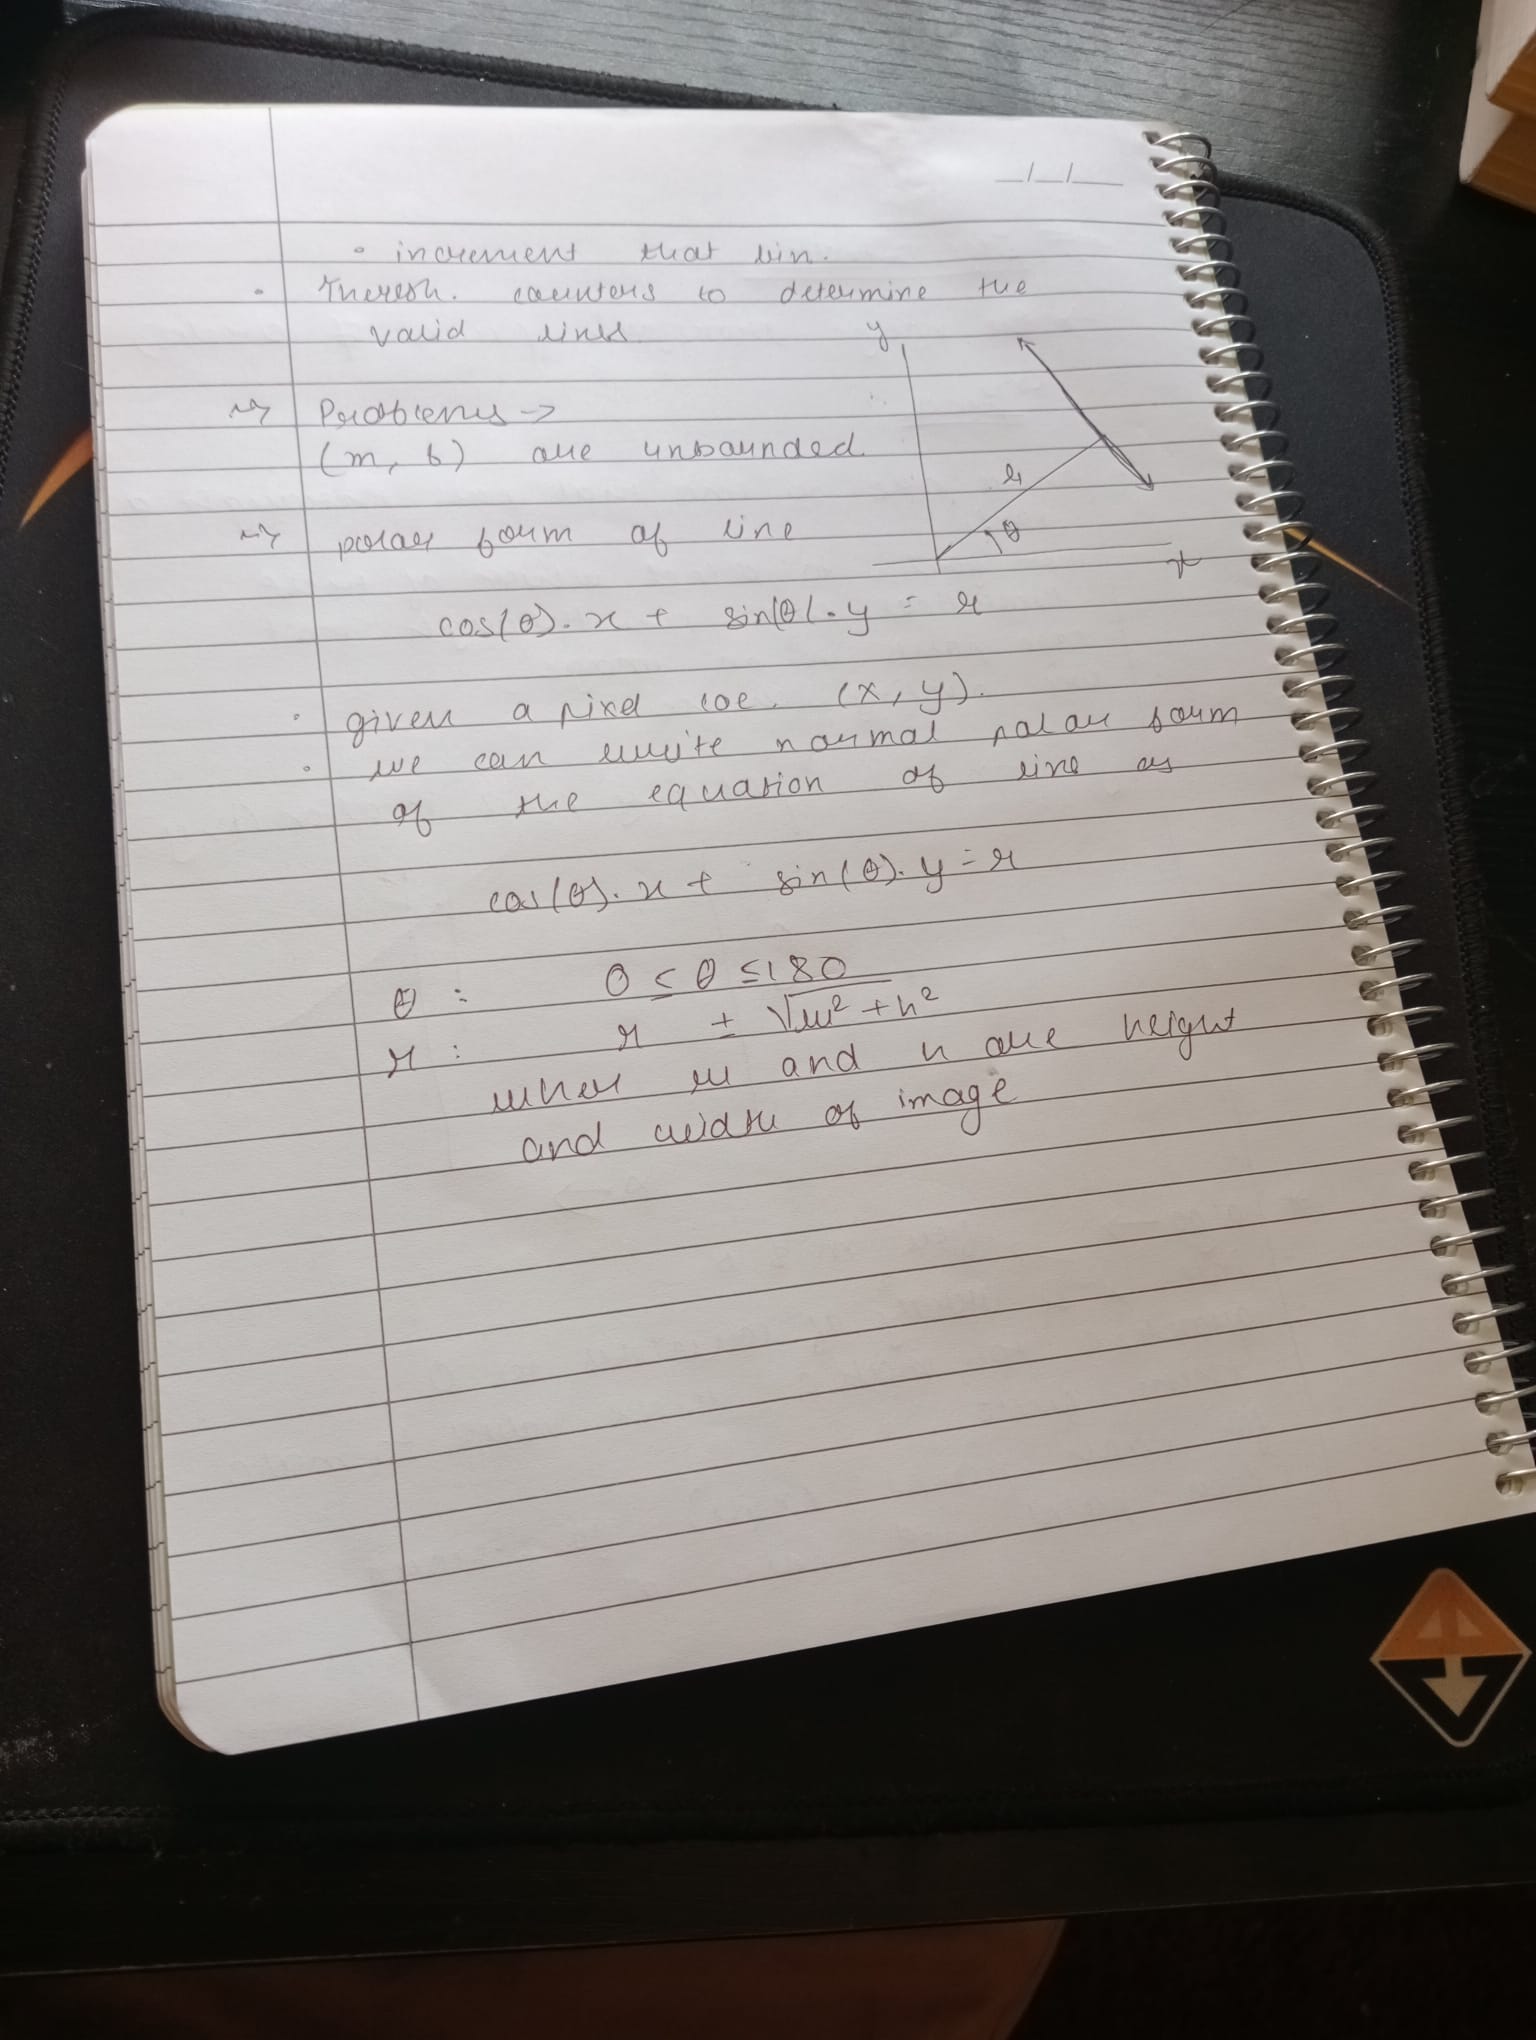 _/_/__
• increment that bin.
• Thresh. counters to determine the
valid lines
y
Problems →
(m, b) are unbounded.
r
θ
x
polar form of line
cos(θ). x + sin(θ). y = r
• given a pixel loc. (x, y).
• we can write normal polar form
of the equation of line as
cos(θ). x + sin(θ). y = r
θ : 0 ≤ θ ≤ 180
r : r ± √w² + h²
where w and h are height
and width of image